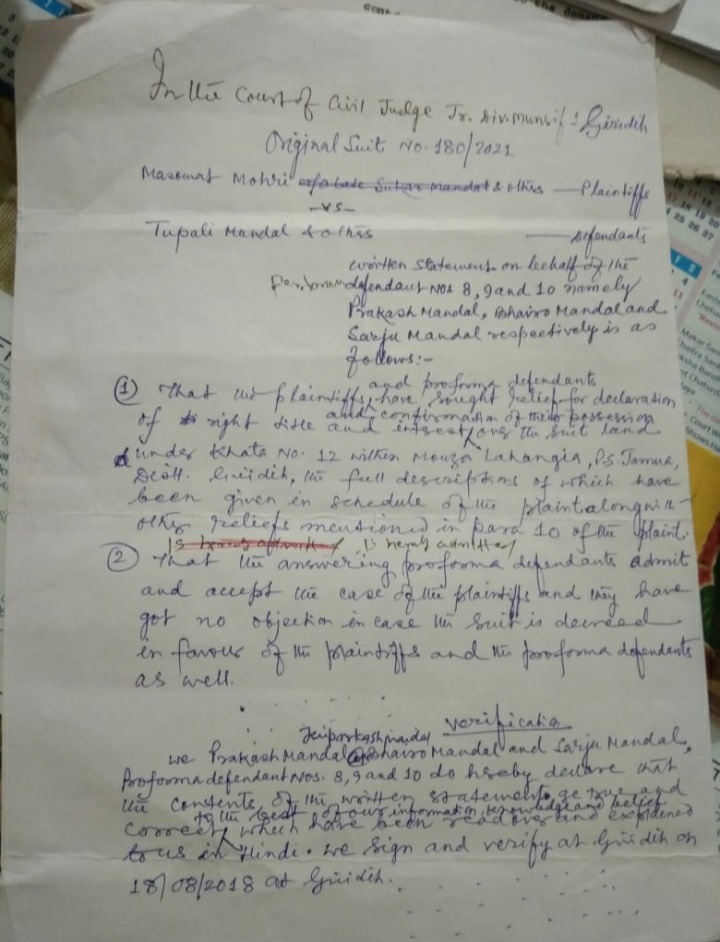 In the Court of Civil Judge Jr. Div. Munsif : Giridih
Original Suit No. 180/2021
Masomat Mohri w/o Late Sukar Mandal & others — Plaintiffs
-vs-
Tupali Mandal & others — Defendants
written statement on behalf of the
defendant Nos 8, 9 and 10 namely
Prakash Mandal, Bhairo Mandal and
Sarju Mandal respectively is as
follows:-
and proforma defendants
(1) That the plaintiffs, have sought relief for declaration
and confirmation of their possession
of right title and interest over the suit land
under Khata No. 12 within Mouza Lahangia, P.S. Jamua,
Distt. Giridih, the full descriptions of which have
been given in schedule of the plaint alongwith
other reliefs mentioned in para 10 of the plaint.
is hereby admitted is hereby admitted
(2) That the answering proforma defendants admit
and accept the case of the plaintiffs and they have
got no objection in case the suit is decreed
in favour of the plaintiffs and the proforma defendants
as well.
Verification
we Prakash Mandal Bhairo Mandal and Sarju Mandal,
Proforma defendant Nos. 8, 9 and 10 do hereby declare that
the contents of the written statements are true and
to the best of our information, knowledge and belief
correct, which have been read over and explained
to us in Hindi. we sign and verify at Giridih on
18/08/2018 at Giridih.